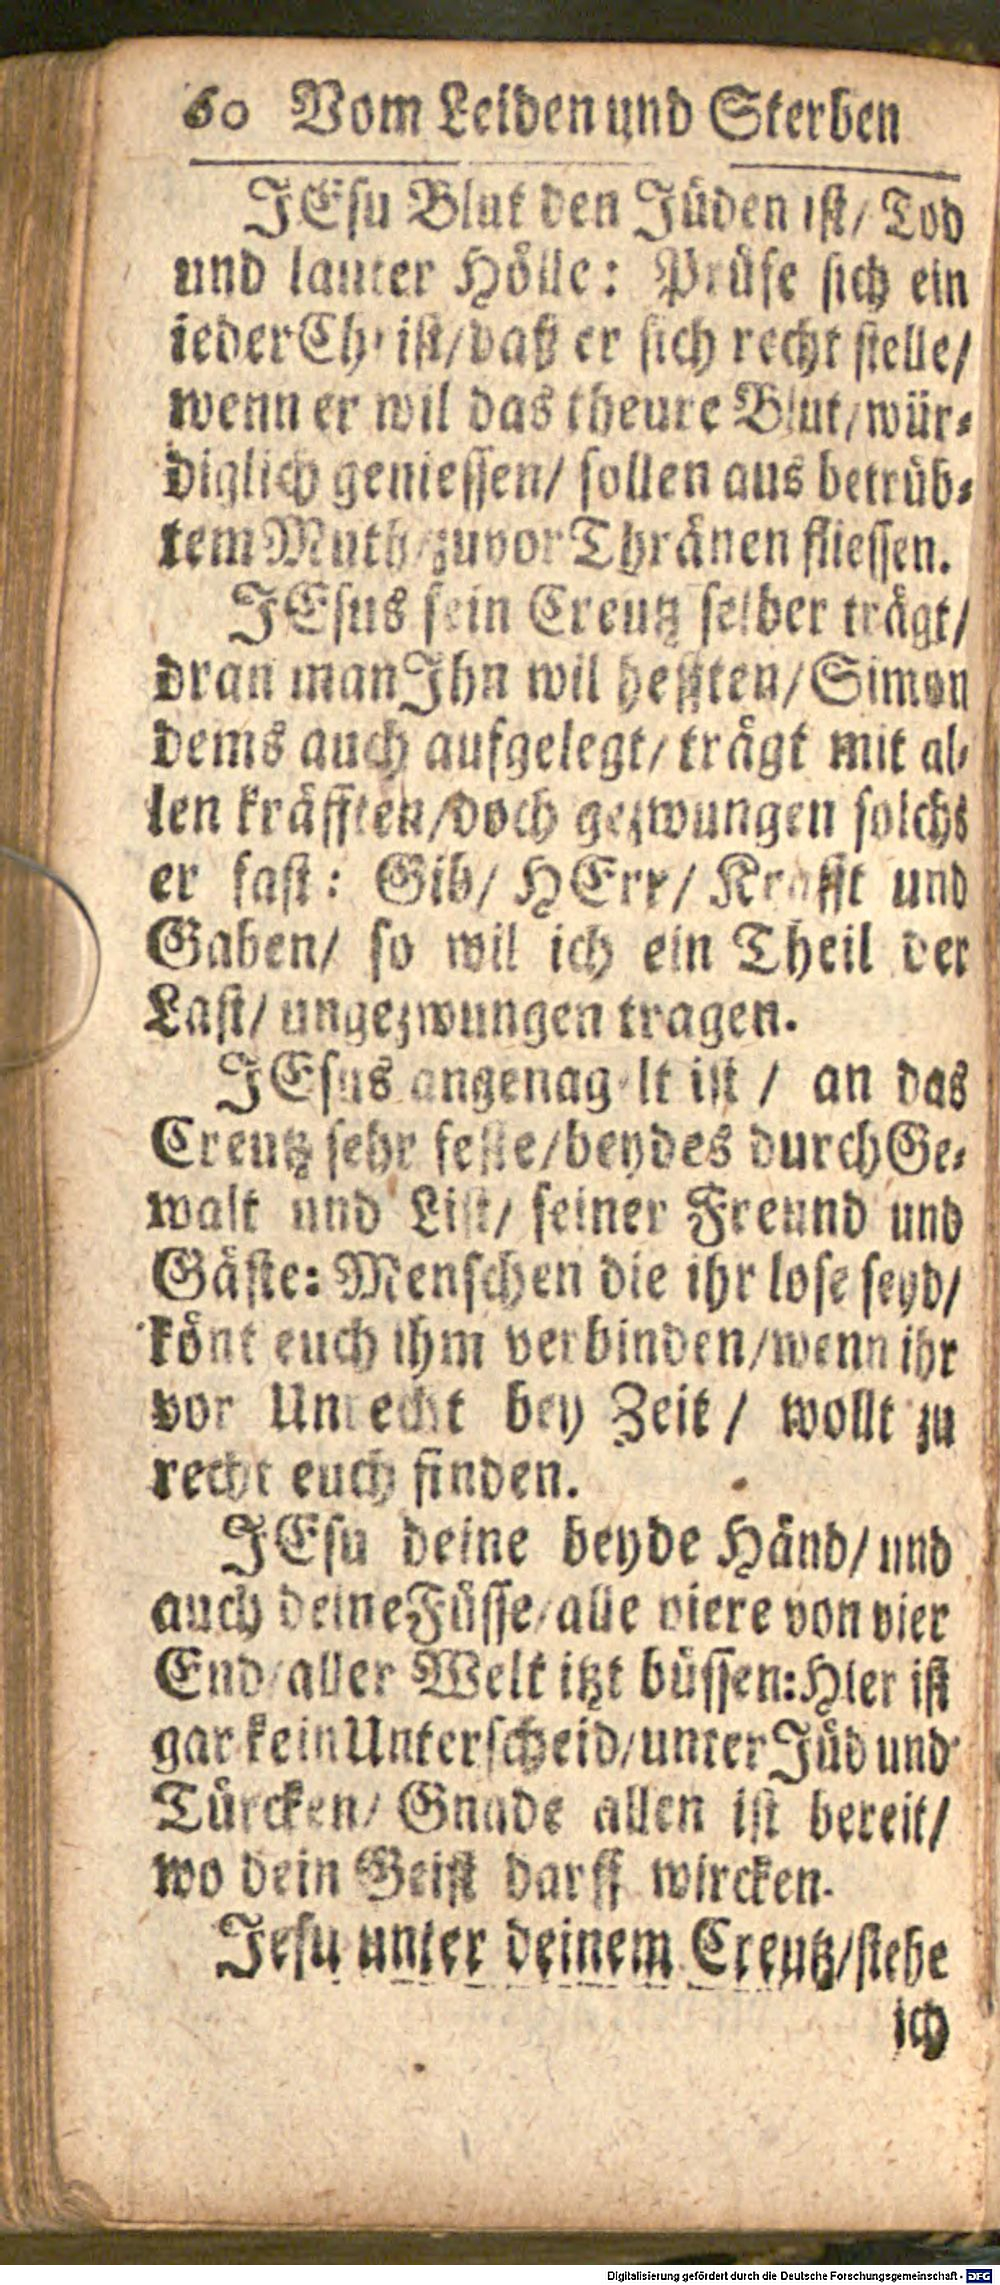 60 Vom Leiden und Sterben
JEsu Blut den Jüden ist/ Tod
und lauter Hölle: Prüfe sich ein
ieder Christ/ daß er sich recht stelle/
wenn er wil das theure Blut/ wür-
diglich geniessen/ sollen aus betrüb-
tem Muth/ zuvor Thränen fliessen.
JEsus sein Creutz selber trägt/
dran man Jhn wil hefften/ Simon
dems auch aufgelegt/ trägt mit al-
len kräfften/ doch gezwungen solchs
er fast: Gib/ HErr/ Krafft und
Gaben/ so wil ich ein Theil der
Last/ ungezwungen tragen.
JEsus angenagelt ist / an das
Creutz sehr feste/ beydes durch Ge-
walt und List/ seiner Freund und
Gäste: Menschen die ihr lose seyd/
könt euch ihm verbinden/ wenn ihr
vor Unrecht bey Zeit / wollt zu
recht euch finden.
JEsu deine beyde Händ/ und
auch deine Füsse/ alle viere von vier
End/ aller Welt itzt büssen: Hier ist
gar kein Unterscheid/ unter Jüd und
Türcken/ Gnade allen ist bereit/
wo dein Geist darff wircken.
Jesu unter deinem Creutz/ stehe
ich
Digitalisierung gefördert durch die Deutsche Forschungsgemeinschaft - DFG